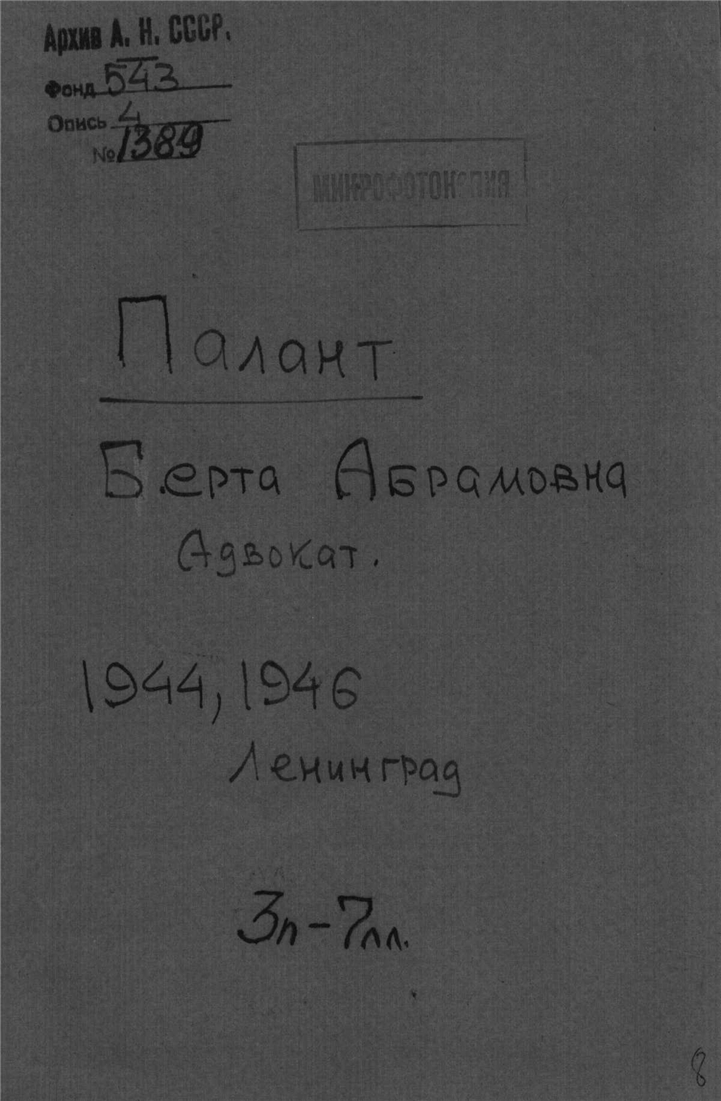 Архив А. Н. СССР.
Фонд 543
Опись 4
№ 1389
МИКРОФОТОКОПИЯ
Палант
Берта Абрамовна
Адвокат.
1944, 1946
Ленинград
3п-7лл.
8